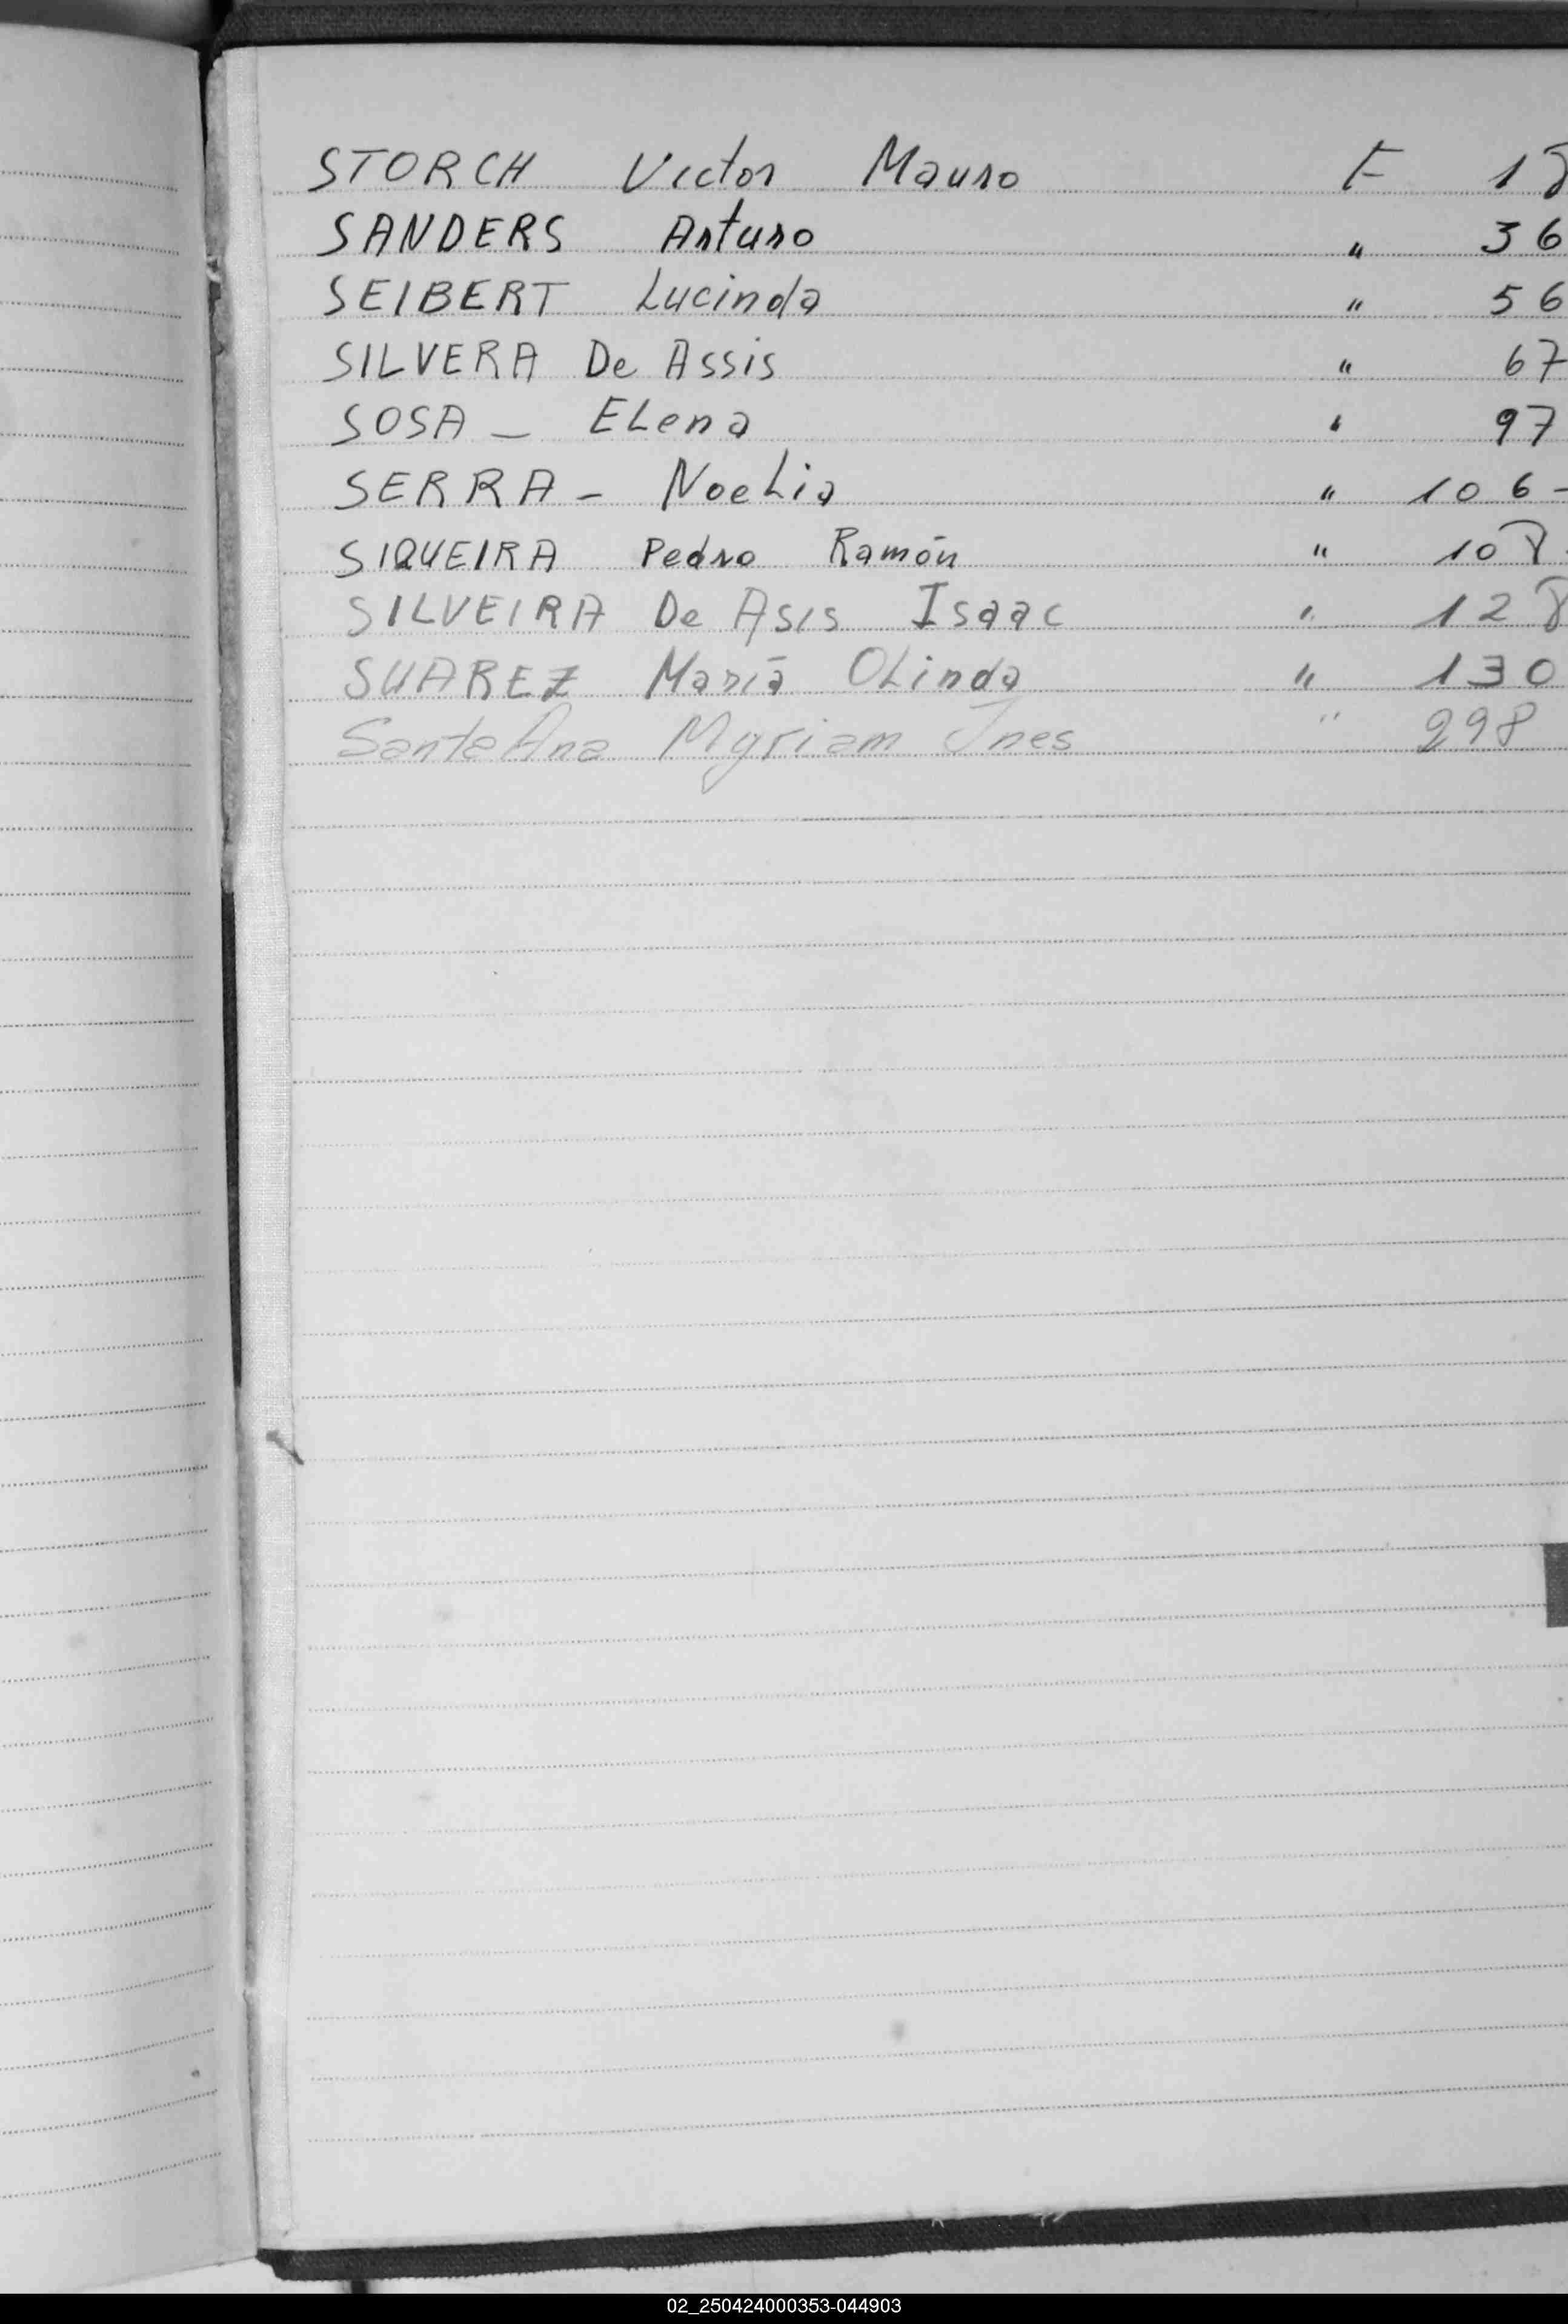 STORCH Victor Mauro F 18
SANDERS Arturo " 36
SEIBERT Lucinda " 56
SILVERA De Assis " 67
SOSA - ELena " 97
SERRA - NoeLia " 106-
SIQUEIRA Pedro Ramón " 108
SILVEIRA De Asis Isaac " 128
SUAREZ María OLinda " 130
Santa Ana Myriam Ines " 298
02_250424000353-044903